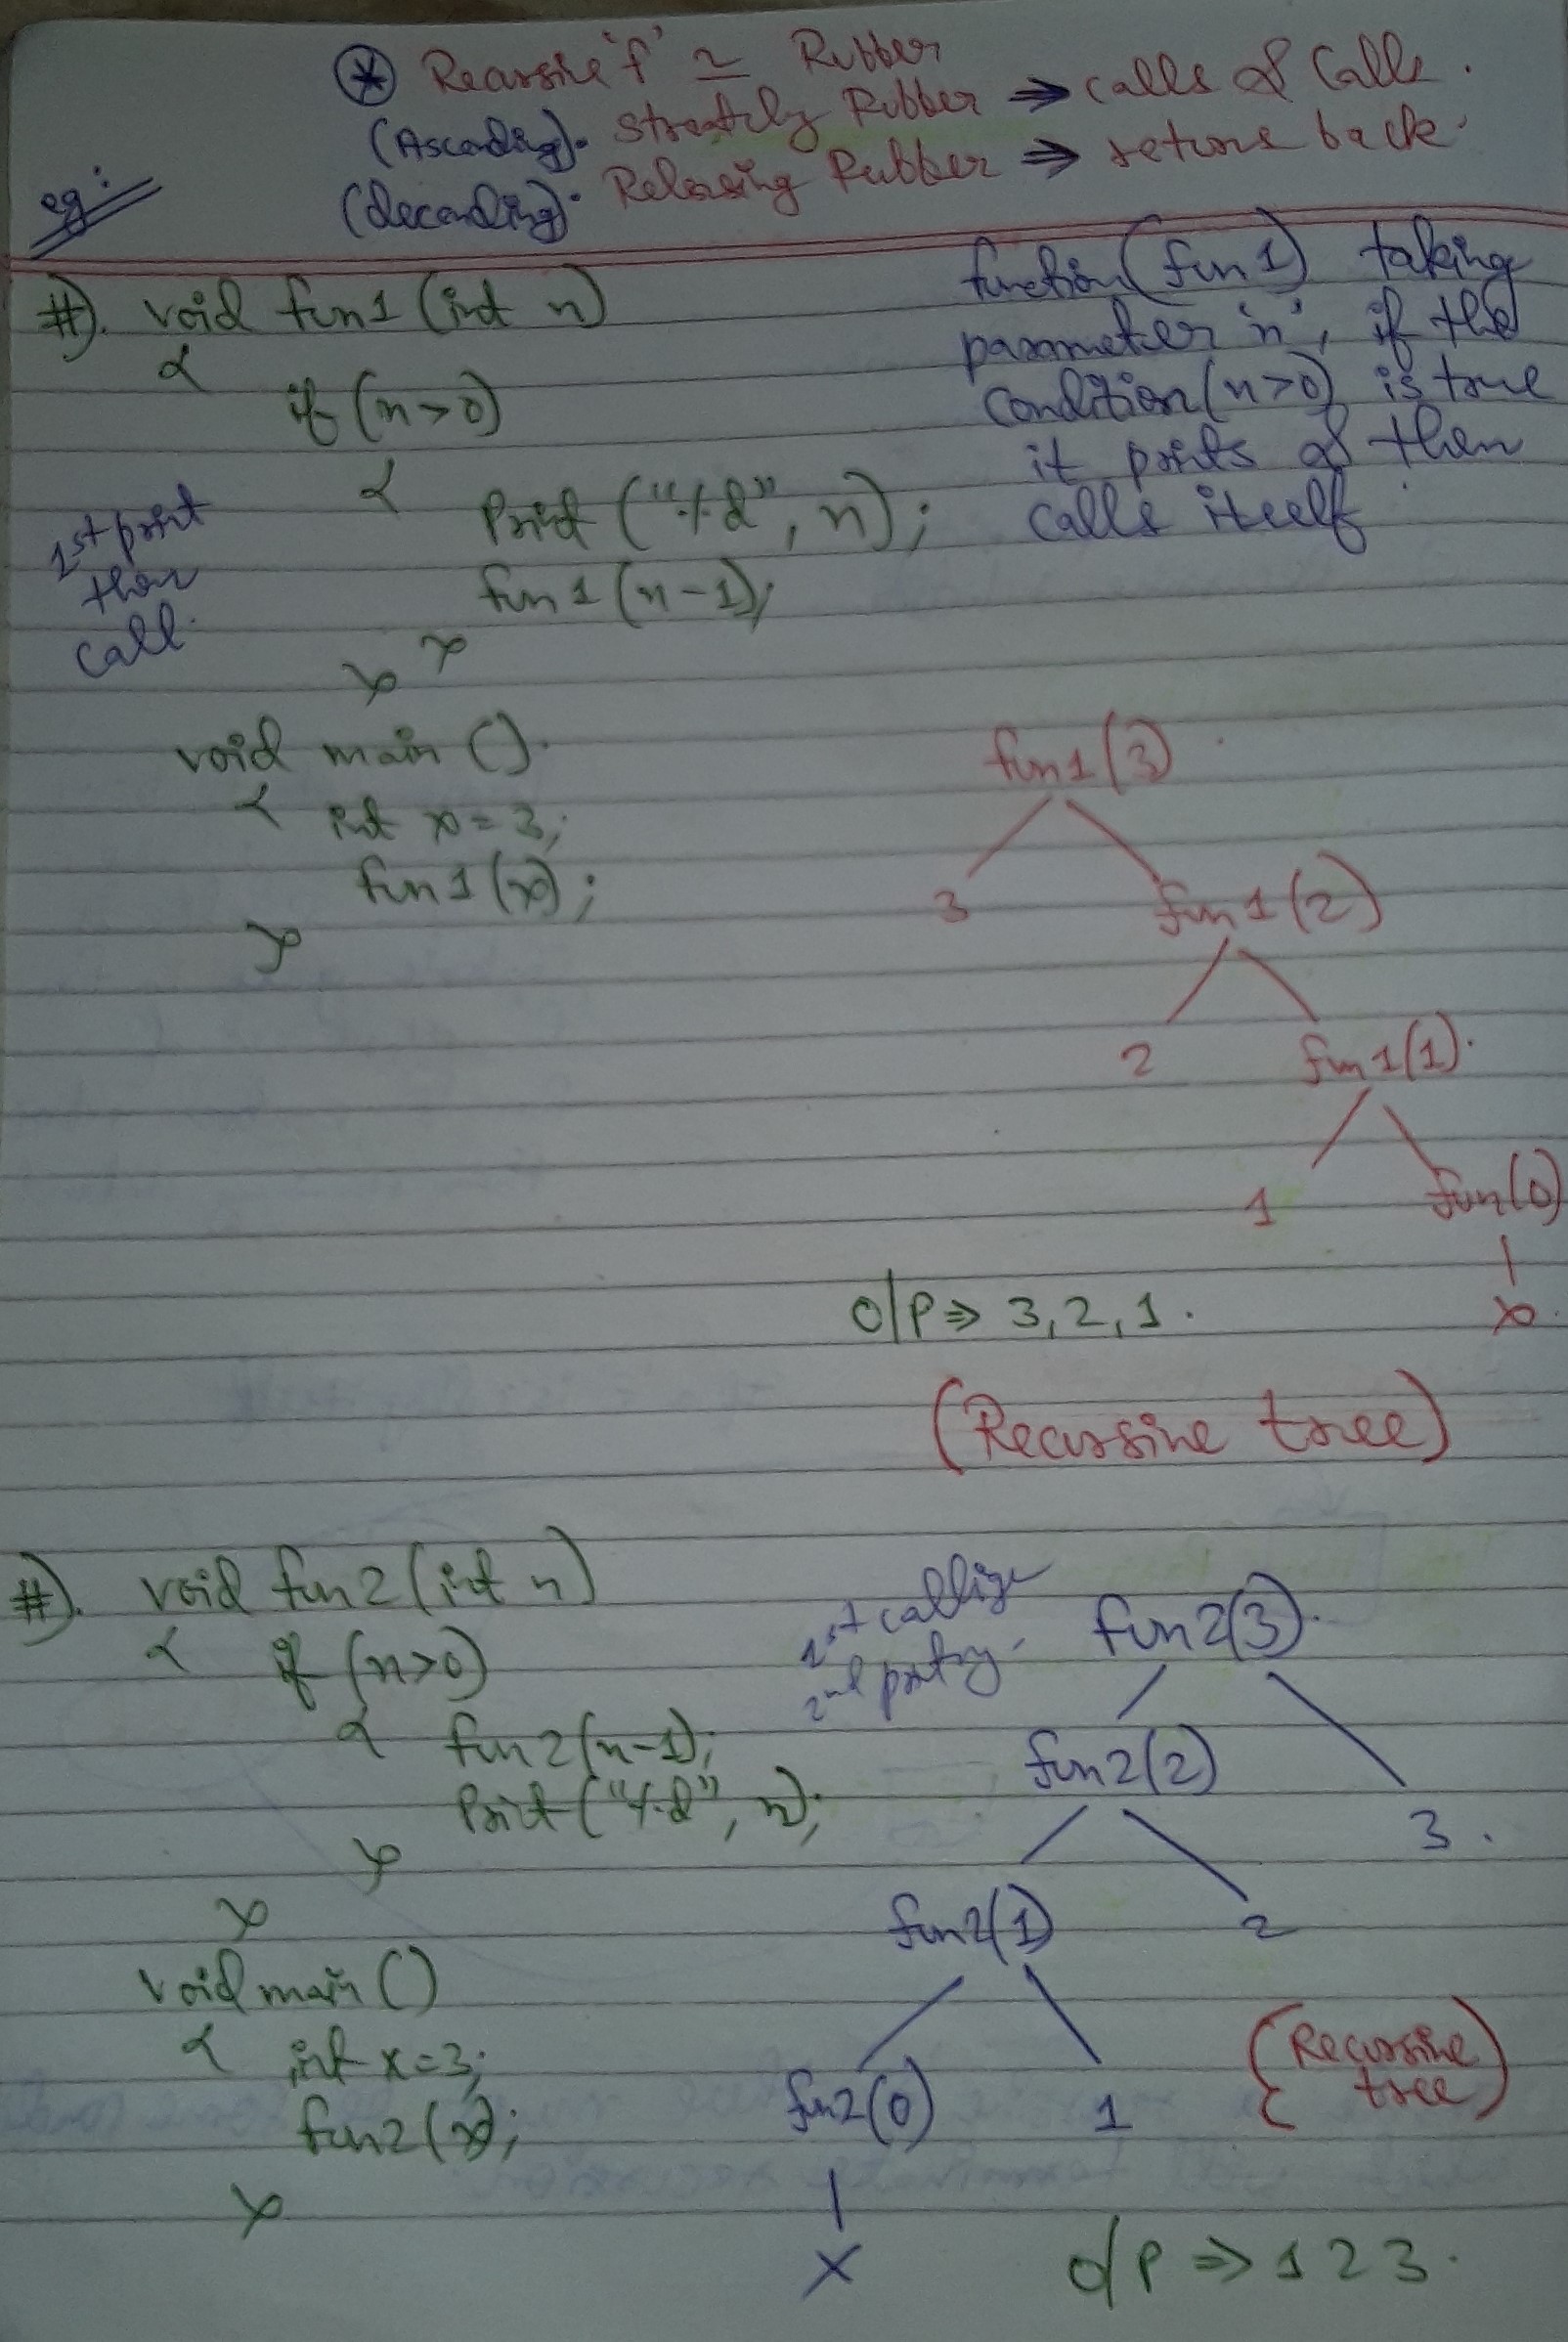 * Recursive 'f' ~ Rubber
(Ascending). Streatchg Rubber ⇒ calls & calls.
(decending). Releasing Rubber ⇒ returns back.
eg:
#). void fun1 (int n)
{
if (n>0)
{
Print ("%d", n);
fun1 (n-1);
}
}
1st print
then
call.
function (fun1) taking
parameter 'n', if the
condition (n>0) is true
it prints & then
calls itself.
void main ().
{ int x = 3;
fun1 (x);
}
fun1(3)
3 fun1(2)
2 fun1(1).
1 fun(0)
x
O/P ⇒ 3, 2, 1.
(Recursive tree)
#). void fun2 (int n)
{ if (n>0)
{ fun2(n-1);
Print ("%d", n);
}
}
void main ()
{ int x=3;
fun2 (x);
}
1st callig
2nd prntg.
fun2(3).
fun2(2) 3.
fun2(1) 2
fun2(0) 1
x
(Recursive
tree)
O/P ⇒ 1 2 3.